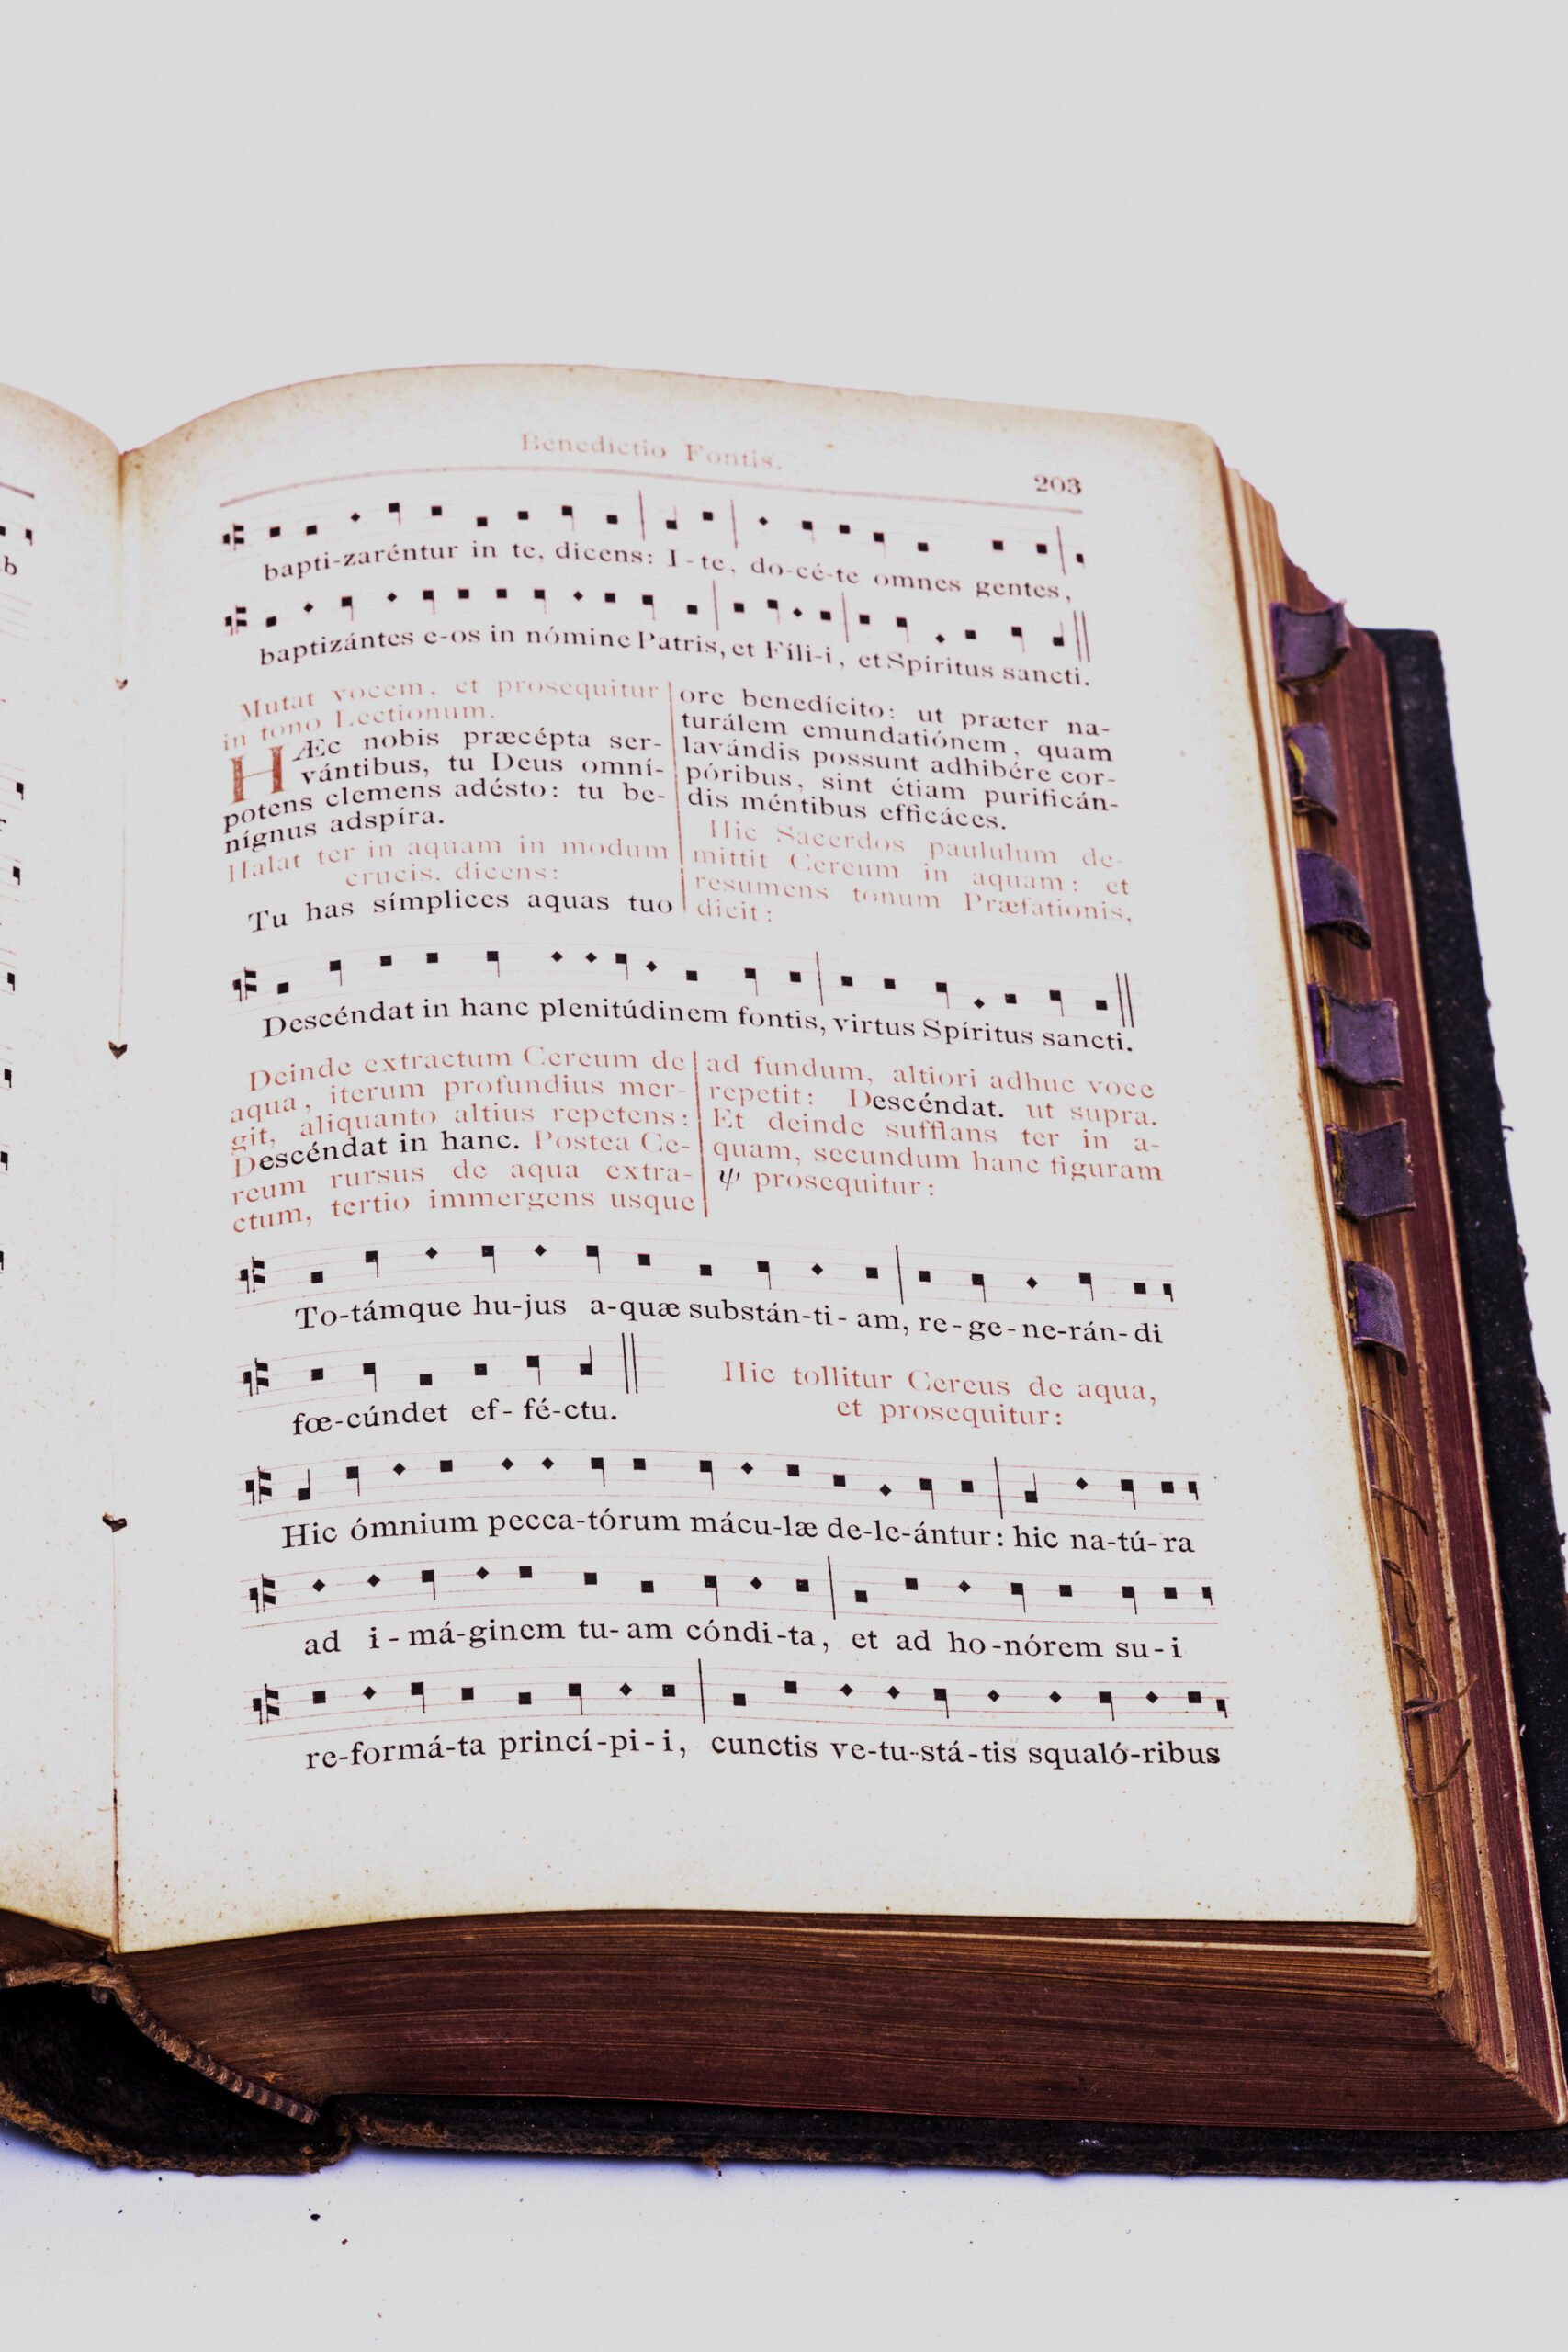 Benedictio Fontis.
203
bapti-zaréntur in te, dicens: I-te, do-cé-te omnes gentes,
baptizántes e-os in nómine Patris, et Fíli-i, et Spíritus sancti.
Mutat vocem, et prosequitur
in tono Lectionum.
HÆc nobis præcépta ser-
vántibus, tu Deus omní-
potens clemens adésto: tu be-
nígnus adspíra.
Halat ter in aquam in modum
crucis, dicens:
Tu has símplices aquas tuo
ore benedícito: ut præter na-
turálem emundatiónem, quam
lavándis possunt adhibére cor-
póribus, sint étiam purificán-
dis méntibus efficáces.
Hic Sacerdos paululum de-
mittit Cereum in aquam: et
resumens tonum Præfationis,
dicit:
Descéndat in hanc plenitúdinem fontis, virtus Spíritus sancti.
Deinde extractum Cereum de
aqua, iterum profundius mer-
git, aliquanto altius repetens:
Descéndat in hanc. Postea Ce-
reum rursus de aqua extra-
ctum, tertio immergens usque
ad fundum, altiori adhuc voce
repetit: Descéndat. ut supra.
Et deinde sufflans ter in a-
quam, secundum hanc figuram
ψ prosequitur:
To-támque hu-jus a-quæ substán-ti-am, re-ge-ne-rán-di
fœ-cúndet ef-fé-ctu.
Hic tollitur Cereus de aqua,
et prosequitur:
Hic ómnium pecca-tórum mácu-læ de-le-ántur: hic na-tú-ra
ad i-má-ginem tu-am cóndi-ta, et ad ho-nórem su-i
re-formá-ta princí-pi-i, cunctis ve-tu-stá-tis squaló-ribus